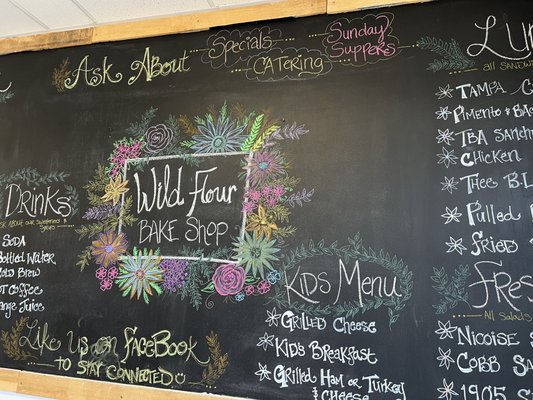 Ask About
Specials
Catering
Sunday
Suppers
Wild Flour
Bake Shop
Drinks
Soda
Bottled Water
Cold Brew
Hot Coffee
Orange Juice
Like Us on FaceBook
to Stay Connected
Kids Menu
Grilled Cheese
Kids Breakfast
Grilled Ham or Turkey
& Cheese
Tampa
Pimento &
TBA
Chicken
Thee
Pulled
Fried
All Salads
Nicoise
Cobb
1905